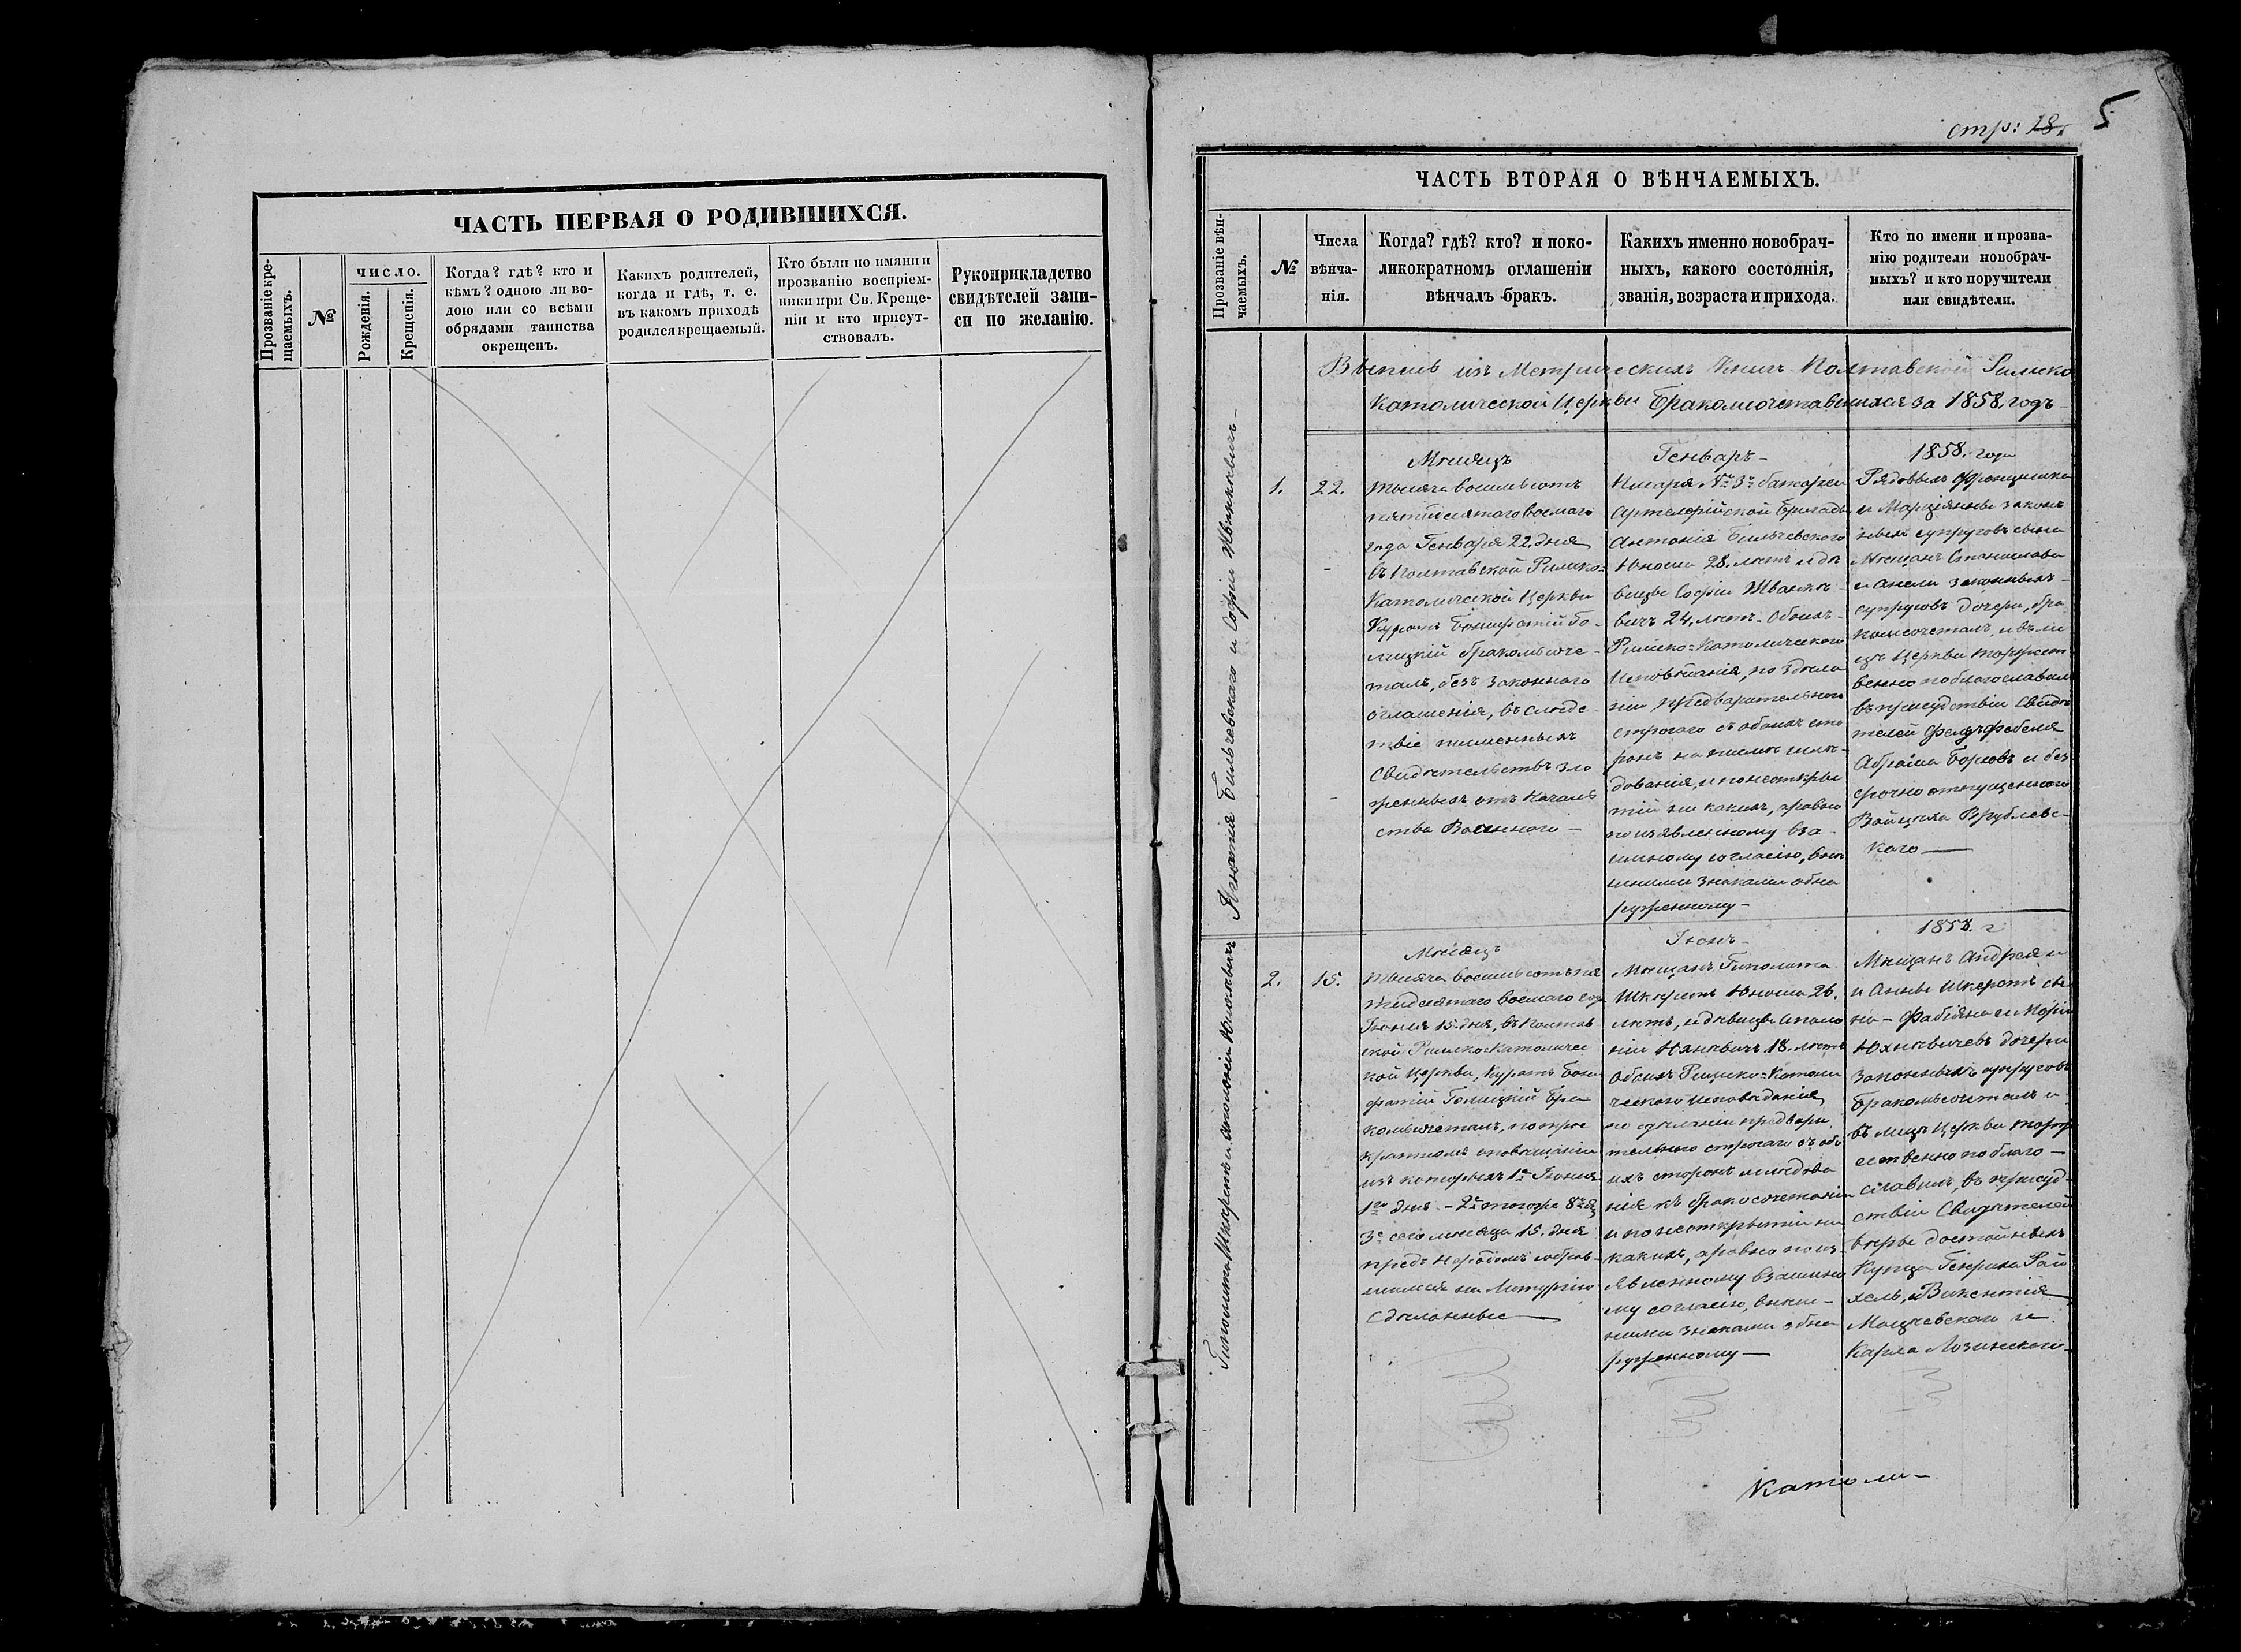 ЧАСТЬ ПЕРВАЯ О РОДИВШИХСЯ.
Прозваніе кре-
щаемыхъ.
№
ЧИСЛО.
Рожденія.
Крещенія.
Когда? гдѣ? кто и
кѣмъ? одною ли во-
дою или со всѣми
обрядами таинства
окрещенъ.
Какихъ родителей,
когда и гдѣ, т. е.
въ какомъ приходѣ
родился крещаемый.
Кто были по имяни и
прозванію воспріем-
ники при Св. Креще-
ніи и кто присут-
ствовалъ.
Рукоприкладство
свидѣтелей запи-
си по желанію.
стр: 18. 5
ЧАСТЬ ВТОРАЯ О ВѢНЧАЕМЫХЪ.
Прозваніе вѣн-
чаемыхъ.
№
Числа
вѣнча-
нія.
Когда? гдѣ? кто? и поко-
ликократномъ оглашеніи
вѣнчалъ бракъ.
Какихъ именно новобрач-
ныхъ, какого состоянія,
званія, возраста и прихода.
Кто по имени и прозва-
нію родители новобрач-
ныхъ? и кто поручители
или свидѣтели.
Выпись изъ Метрическихъ Книгъ Полтавской Римско
Католической Церкви Бракомсочетавшихся за 1858. годъ
Антонія Бильчевскаго и Софіи
1.
22.
Мѣсяцъ
Тысяча восемьсотъ
пятьдесятаго восьмаго
года Генваря 22. дня
въ Полтавской Римско-
Католической Церкви
Куратъ Бонифатій Го-
лицкій бракомъ соче-
талъ, безъ законнаго
оглашенія, въ слѣдс-
твіе письменныхъ
Свидѣтельствъ
отъ Началь
ства Военнаго —
Генварь —
Писаря № 3й батареи
Артилерійской Бригады
Антонія Бильчевскаго
Юноша 28. лѣтъ и дѣ
вицы Софіи
вичъ 24. лѣтъ. Обоихъ
Римско-Католическаго
Исповѣданія, по здѣла
ніи предварительнаго
строгаго съ обоихъ сто
ронъ на письмѣ изслѣ-
дованія, и по неоткры
тіи ни какихъ, а равно
по изъявленному вза-
имному согласію, внѣ
шними знаками обна
руженному —
1858. года
Рядовыхъ Францишка
и Марціянны закон
ныхъ супруговъ сына
Мѣщанъ Станислава
и Анели законныхъ —
супруговъ дочерь, бра
комъ сочеталъ, и въ ли
цѣ Церкви торжест-
венно поблагословилъ
въ присудствіи Свидѣ
телей Фельдфебеля
и без
срочно отпущеннаго
Войцѣха Врублевс-
каго —
Гиполита Шкеретъ и Аполоніи Юхневичъ
2.
15.
Мѣсяцъ
Тысяча восемьсотъ пя
тьдесятаго восьмаго года
Іюня 15. дня, въ Полтавс-
кой Римско-Католичес
кой Церкви, Куратъ Бони
фатій Голицкій Бра
комъ сочеталъ, по трое
кратномъ оповѣщеніи
изъ которыхъ 1е Іюня
1го дня — 2е тогоже 8го дня
3е сего мѣсяца 15. дня
предъ Народомъ собрав-
шимся на Литургію
сдѣланные —
Іюнь —
Мѣщанъ Гиполита
Шкеретъ Юноша 26.
лѣтъ, и дѣвицы Аполо
ніи Юхневичъ 18. лѣтъ
Обоихъ Римско-Католи
ческаго Исповѣданія
по сдѣланіи предвари
тельнаго строгаго съ обо
ихъ сторонъ изслѣдова
нія къ бракосочетанію
и по неоткрытіи ни
какихъ, а равно по изъ-
явленному взаимно
му согласію, внѣш-
ними знаками обна
руженному —
1858. г
Мѣщанъ Андрея и
и Анны Шкеротъ сы
на — Фабіяна и Маріи
Юхневичевъ дочерь
законныхъ супруговъ
бракомъ сочеталъ и
въ лицѣ Церкви торж
ественно поблаго —
славилъ, въ присуд-
ствіи Свидѣтелей
вѣры достойныхъ
Купца Генриха Рай
хель, Викентія
и
Карла Лозинскаго —
Католи —